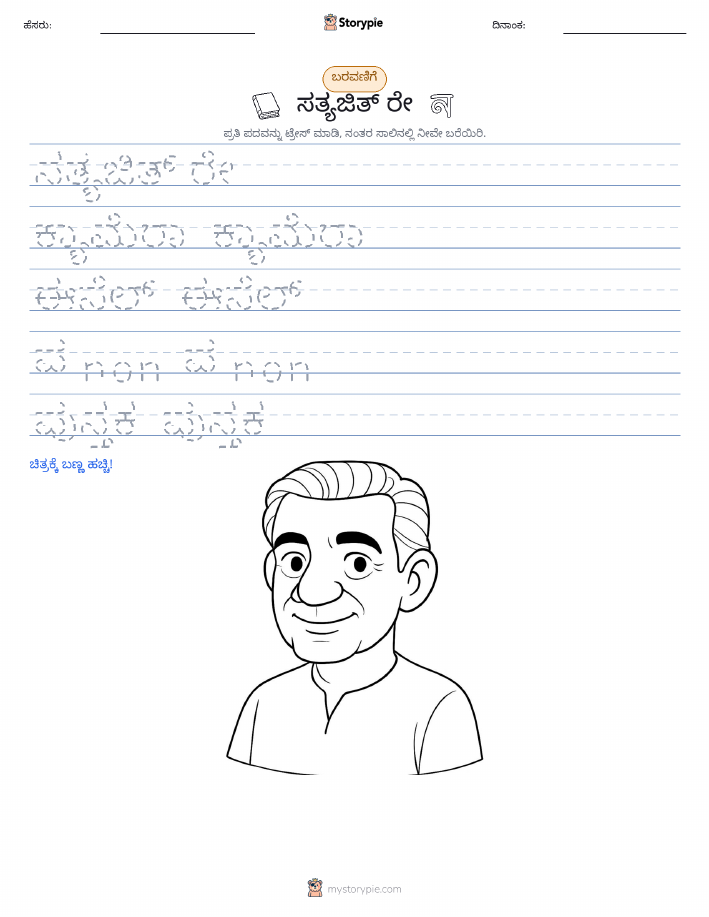 ಹೆಸರು:
Storypie
ದಿನಾಂಕ:
ಬರವಣಿಗೆ
ಸತ್ಯಜಿತ್ ರೇ
ಪ್ರತಿ ಪದವನ್ನು ಟ್ರೇಸ್ ಮಾಡಿ, ನಂತರ ಸಾಲಿನಲ್ಲಿ ನೀವೇ ಬರೆಯಿರಿ.
ಸತ್ಯಜಿತ್ ರೇ
ಕ್ಯಾಮೆರಾ ಕ್ಯಾಮೆರಾ
ಈಸೆಲ್ ಈಸೆಲ್
ಪೆnon ಪೆnon
ಪುಸ್ತಕ ಪುಸ್ತಕ
ಚಿತ್ರಕ್ಕೆ ಬಣ್ಣ ಹಚ್ಚಿ!
mystorypie.com